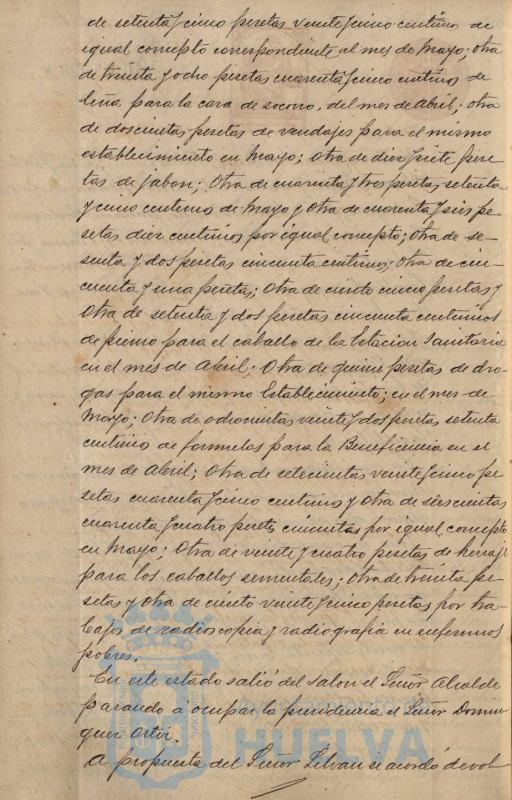 de setenta y cinco pesetas veinte y cinco centimos de
igual concepto correspondiente al mes de Mayo; otra
de treinta y ocho pesetas cuarenta y cinco centimos de
leña para la casa de socorro, del mes de Abril; otra
de doscientas pesetas de vendajes para el mismo
establecimiento en Mayo; otra de diez y siete pese-
tas de jabon; otra de cuarenta y tres pesetas setenta
y cinco centimos de Mayo y otra de cuarenta y seis pe-
setas diez centimos por igual concepto; otra de se-
senta y dos pesetas cincuenta centimos; otra de cin-
cuenta y una pesetas; otra de ciento cinco pesetas y
otra de setenta y dos pesetas cincuenta centimos
de pienso para el caballo de la Estacion Sanitaria
en el mes de Abril; otra de quince pesetas de dro-
gas para el mismo Establecimiento; en el mes de
Mayo; otra de ochocientas veinte y dos pesetas setenta
centimos de formulas para la Beneficencia en el
mes de Abril; otra de setecientas veinte y cinco pe-
setas cuarenta y cinco centimos y otra de seiscientas
cuarenta y cuatro pesetas cincuenta por igual concepto
en Mayo; otra de veinte y cuatro pesetas de herraje
para los caballos sementales; otra de treinta pe-
setas y otra de ciento veinte y cinco pesetas por tra-
bajos de radioscopia y radiografia en enfermos
pobres.
En este estado salió del Salon el Señor Alcalde
pasando á ocupar la presidencia el Señor Domin
guez Ortiz.
A propuesta del Señor se acordó devol
HUELVA